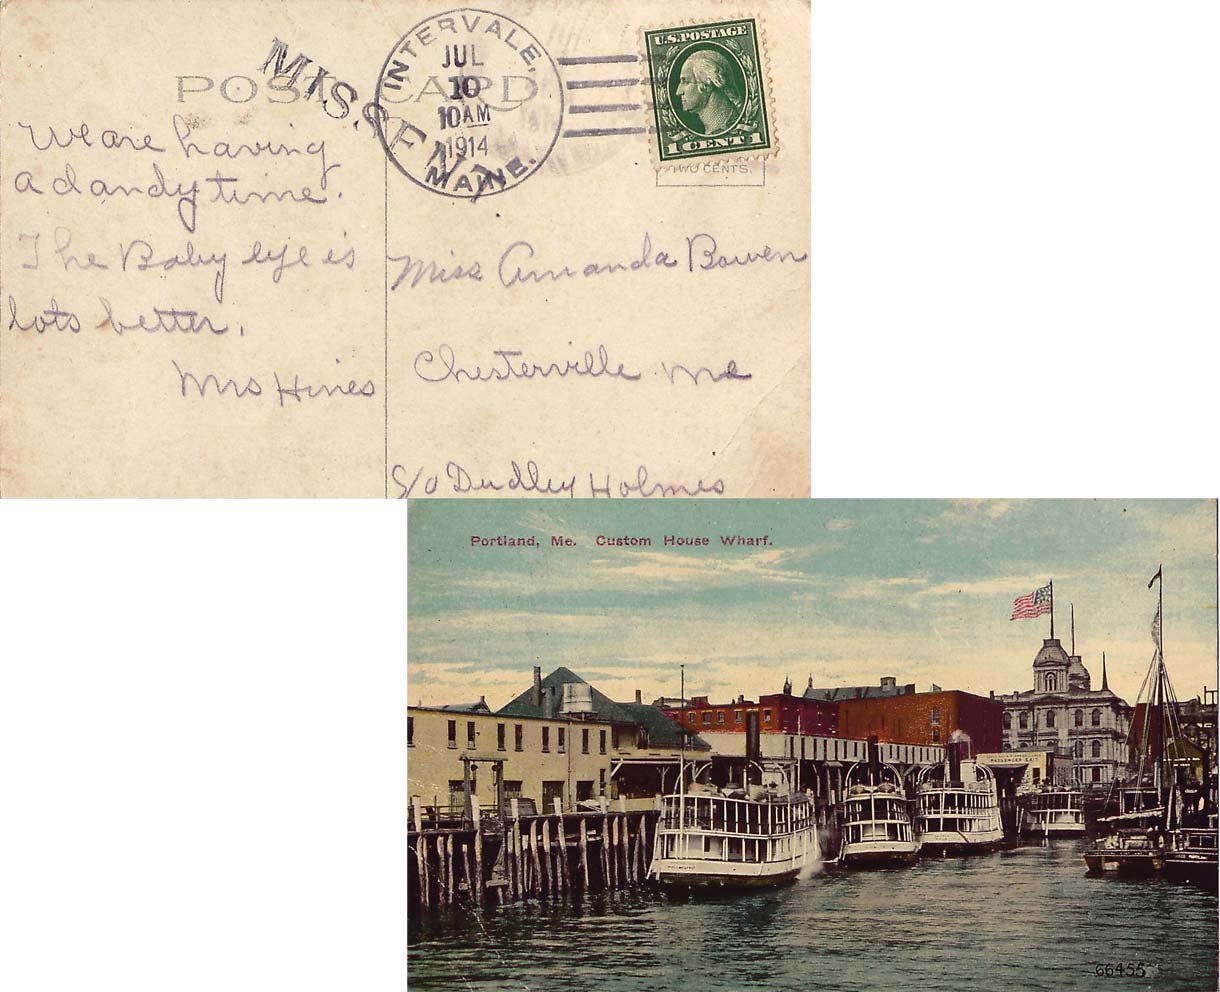 POST CARD
MISSENT
INTERVALE,
JUL
10
10 AM
1914
MAINE.
U.S. POSTAGE
1 CENT 1
TWO CENTS.
We are having
a dandy time.
The Baby eye is
lots better.
Mrs Hines
Miss Amanda Bowen
Chesterville Me
c/o Dudley Holmes
Portland, Me. Custom House Wharf.
PASSENGER EXIT
66455